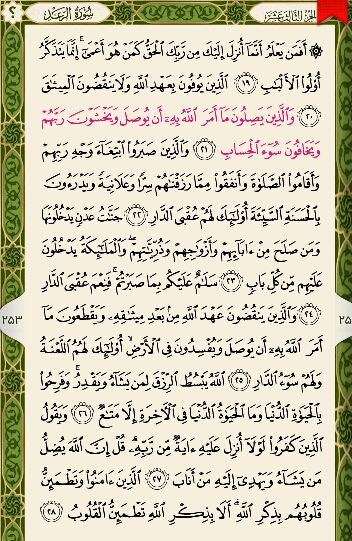 سُورَةُ الرَّعْدِ
الجُزءُ الثَّالِثَ عَشَرَ
؟
۞ أَفَمَن يَعْلَمُ أَنَّمَآ أُنزِلَ إِلَيْكَ مِن رَّبِّكَ ٱلْحَقُّ كَمَنْ هُوَ أَعْمَىٰٓ ۚ إِنَّمَا يَتَذَكَّرُ
أُو۟لُوا۟ ٱلْأَلْبَٰبِ ﴿١٩﴾ ٱلَّذِينَ يُوفُونَ بِعَهْدِ ٱللَّهِ وَلَا يَنقُضُونَ ٱلْمِيثَٰقَ
﴿٢٠﴾ وَٱلَّذِينَ يَصِلُونَ مَآ أَمَرَ ٱللَّهُ بِهِۦٓ أَن يُوصَلَ وَيَخْشَوْنَ رَبَّهُمْ
وَيَخَافُونَ سُوٓءَ ٱلْحِسَابِ ﴿٢١﴾ وَٱلَّذِينَ صَبَرُوا۟ ٱبْتِغَآءَ وَجْهِ رَبِّهِمْ
وَأَقَامُوا۟ ٱلصَّلَوٰةَ وَأَنفَقُوا۟ مِمَّا رَزَقْنَٰهُمْ سِرًّا وَعَلَانِيَةً وَيَدْرَءُونَ
بِٱلْحَسَنَةِ ٱلسَّيِّئَةَ أُو۟لَٰٓئِكَ لَهُمْ عُقْبَى ٱلدَّارِ ﴿٢٢﴾ جَنَّٰتُ عَدْنٍ يَدْخُلُونَهَا
وَمَن صَلَحَ مِنْ ءَابَآئِهِمْ وَأَزْوَٰجِهِمْ وَذُرِّيَّٰتِهِمْ ۖ وَٱلْمَلَٰٓئِكَةُ يَدْخُلُونَ
عَلَيْهِم مِّن كُلِّ بَابٍ ﴿٢٣﴾ سَلَٰمٌ عَلَيْكُم بِمَا صَبَرْتُمْ ۚ فَنِعْمَ عُقْبَى ٱلدَّارِ
﴿٢٤﴾ وَٱلَّذِينَ يَنقُضُونَ عَهْدَ ٱللَّهِ مِنۢ بَعْدِ مِيثَٰقِهِۦ وَيَقْطَعُونَ مَآ
أَمَرَ ٱللَّهُ بِهِۦٓ أَن يُوصَلَ وَيُفْسِدُونَ فِى ٱلْأَرْضِ ۙ أُو۟لَٰٓئِكَ لَهُمُ ٱللَّعْنَةُ
وَلَهُمْ سُوٓءُ ٱلدَّارِ ﴿٢٥﴾ ٱللَّهُ يَبْسُطُ ٱلرِّزْقَ لِمَن يَشَآءُ وَيَقْدِرُ ۚ وَفَرِحُوا۟
بِٱلْحَيَوٰةِ ٱلدُّنْيَا وَمَا ٱلْحَيَوٰةُ ٱلدُّنْيَا فِى ٱلْءَاخِرَةِ إِلَّا مَتَٰعٌ ﴿٢٦﴾ وَيَقُولُ
ٱلَّذِينَ كَفَرُوا۟ لَوْلَآ أُنزِلَ عَلَيْهِ ءَايَةٌ مِّن رَّبِّهِۦ ۗ قُلْ إِنَّ ٱللَّهَ يُضِلُّ
مَن يَشَآءُ وَيَهْدِىٓ إِلَيْهِ مَنْ أَنَابَ ﴿٢٧﴾ ٱلَّذِينَ ءَامَنُوا۟ وَتَطْمَئِنُّ
قُلُوبُهُم بِذِكْرِ ٱللَّهِ ۗ أَلَا بِذِكْرِ ٱللَّهِ تَطْمَئِنُّ ٱلْقُلُوبُ ﴿٢٨﴾
٢٥٣
٢٥